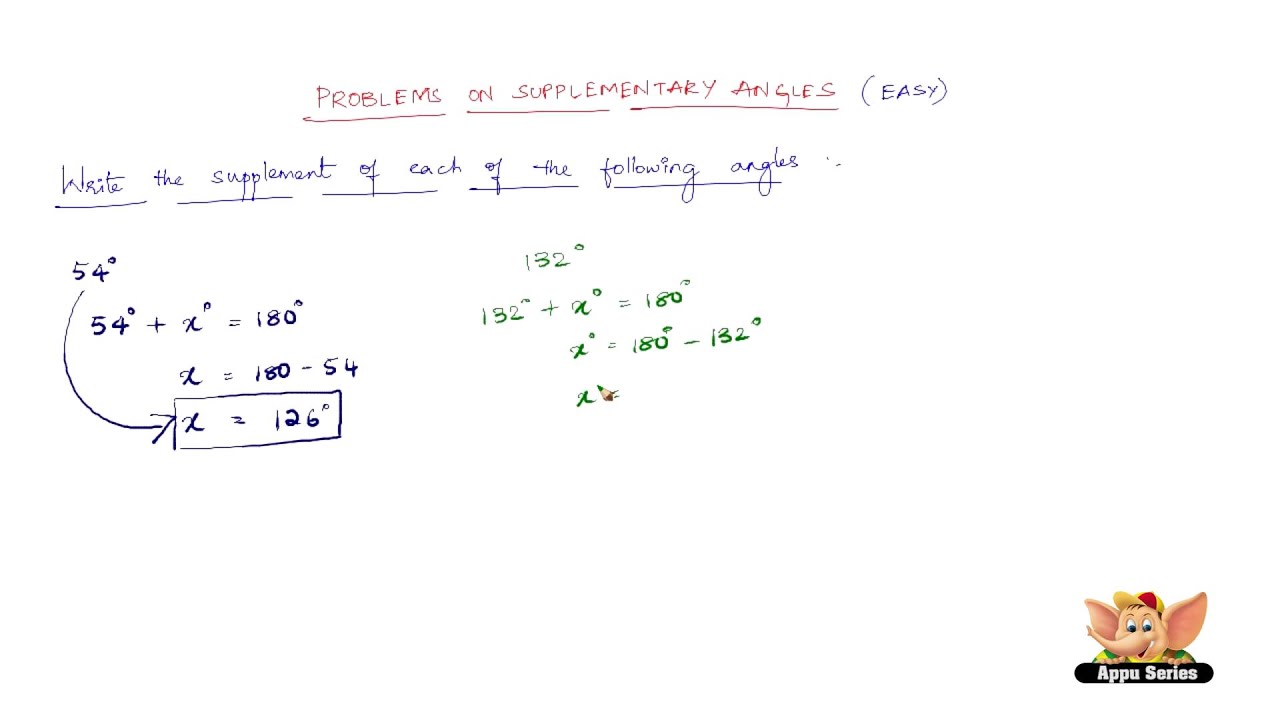 PROBLEMS ON SUPPLEMENTARY ANGLES (EASY)
Write the supplement of each of the following angles :-
54°
54° + x° = 180°
x = 180 - 54
x = 126°
132°
132° + x° = 180°
x° = 180° - 132°
x =
Appu Series